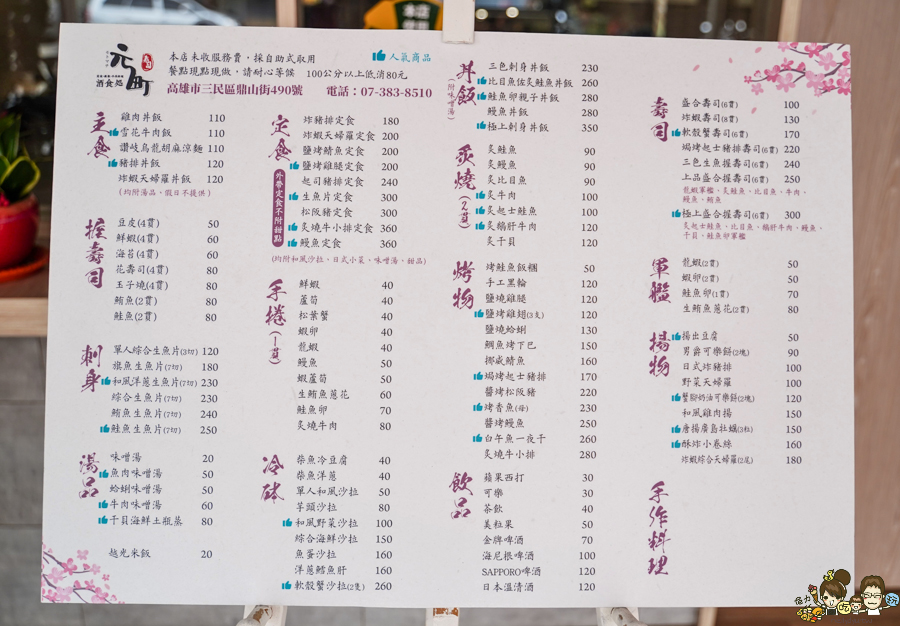 元町
壽司
酒食処
本店未收服務費，採自助式取用
餐點現點現做，請耐心等候 100公分以上低消80元
高雄市三民區鼎山街490號 電話：07-383-8510
人氣商品
主食
雞肉丼飯 110
雪花牛肉飯 110
讚岐烏龍胡麻涼麵 110
豬排丼飯 120
炸蝦天婦羅丼飯 120
(均附湯品，假日不提供)
握壽司
豆皮(4貫) 50
鮮蝦(4貫) 60
海苔(4貫) 60
花壽司(4貫) 80
玉子燒(4貫) 80
鮪魚(2貫) 80
鮭魚(2貫) 80
刺身
單人綜合生魚片(3切) 120
旗魚生魚片(7切) 180
和風洋蔥生魚片(7切) 230
綜合生魚片(7切) 230
鮪魚生魚片(7切) 240
鮭魚生魚片(7切) 250
湯品
味噌湯 20
魚肉味噌湯 50
蛤蜊味噌湯 50
牛肉味噌湯 60
干貝海鮮土瓶蒸 80
越光米飯 20
定食
外帶定食不附甜點
炸豬排定食 180
炸蝦天婦羅定食 200
鹽烤鯖魚定食 200
鹽烤雞腿定食 200
起司豬排定食 240
生魚片定食 300
松阪豬定食 300
炙燒牛小排定食 360
鰻魚定食 360
(均附和風沙拉、日式小菜、味噌湯、甜品)
手捲(1貫)
鮮蝦 40
蘆筍 40
松葉蟹 40
蝦卵 40
龍蝦 40
鰻魚 50
蝦蘆筍 50
生鮪魚蔥花 60
鮭魚卵 70
炙燒牛肉 80
冷缽
柴魚冷豆腐 40
柴魚洋蔥 40
單人和風沙拉 50
芋頭沙拉 80
和風野菜沙拉 100
綜合海鮮沙拉 150
魚蛋沙拉 160
洋蔥鱈魚肝 160
軟殼蟹沙拉(2隻) 260
丼飯(附味噌湯)
三色刺身丼飯 230
比目魚佐炙鮭魚丼飯 260
鮭魚卵親子丼飯 280
鰻魚丼飯 280
極上刺身丼飯 350
炙燒(2貫)
炙鮭魚 90
炙鰻魚 90
炙比目魚 90
炙牛肉 100
炙起士鮭魚 100
炙鵝肝牛肉 120
炙干貝 120
烤物
烤鮭魚飯糰 50
手工黑輪 120
鹽燒雞腿 120
鹽烤雞翅(3支) 120
鹽燒蛤蜊 130
鯛魚烤下巴 150
挪威鯖魚 160
焗烤起士豬排 170
醬烤松阪豬 220
烤香魚(母) 230
醬烤鰻魚 250
白午魚一夜干 260
炙燒牛小排 280
飲品
蘋果西打 30
可樂 30
茶飲 40
美粒果 50
金牌啤酒 70
海尼根啤酒 100
SAPPORO啤酒 120
日本溫清酒 120
壽司
盛合壽司(6貫) 100
炸蝦壽司(8貫) 130
軟殼蟹壽司(6貫) 170
焗烤起士豬排壽司(6貫) 220
三色生魚握壽司(6貫) 240
上品盛合握壽司(6貫) 250
龍蝦軍艦、炙鮭魚、比目魚、牛肉、
鰻魚、鮪魚
極上盛合握壽司(6貫) 300
炙起士鮭魚、比目魚、鵝肝牛肉、鰻魚、
干貝、鮭魚卵軍艦
軍艦
龍蝦(2貫) 50
蝦卵(2貫) 50
鮭魚卵(1貫) 70
生鮪魚蔥花(2貫) 80
揚物
揚出豆腐 50
男爵可樂餅(2塊) 90
日式炸豬排 100
野菜天婦羅 100
蟹腳奶油可樂餅(2塊) 120
和風雞肉揚 150
唐揚廣島牡蠣(3粒) 150
酥炸小卷絲 160
炸蝦綜合天婦羅(2尾) 180
手作料理